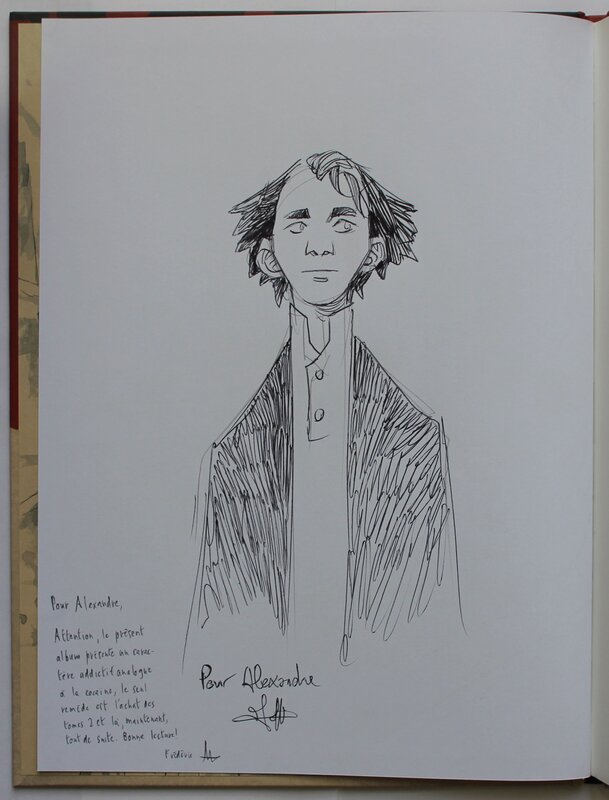 Pour Alexandre,
Attention, le présent
album présente un carac-
tère addictif analogue
à la cocaïne, le seul
remède est l'achat des
tomes 2 et là, maintenant,
tout de suite. Bonne lecture!
Frédéric
Pour Alexandre